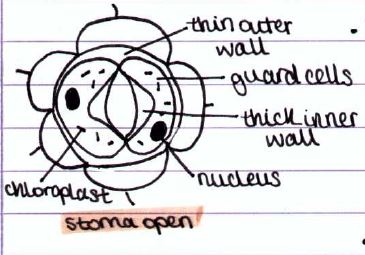 thin outer
wall
guard cells
thick inner
wall
nucleus
chloroplast
stoma open